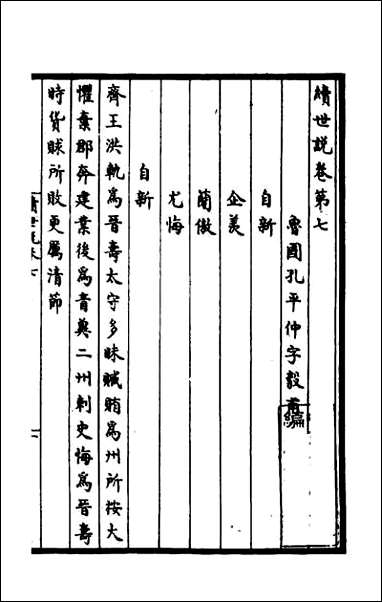 續世說卷第七
魯國孔平仲字毅甫編
自新
企羡
簡傲
尤悔
自新
齊王洪軌爲晉壽太守多昧贓賄爲州所按大
懼棄郡奔建業後爲青冀二州刺史悔爲晉壽
時貨賕所敗更厲清節